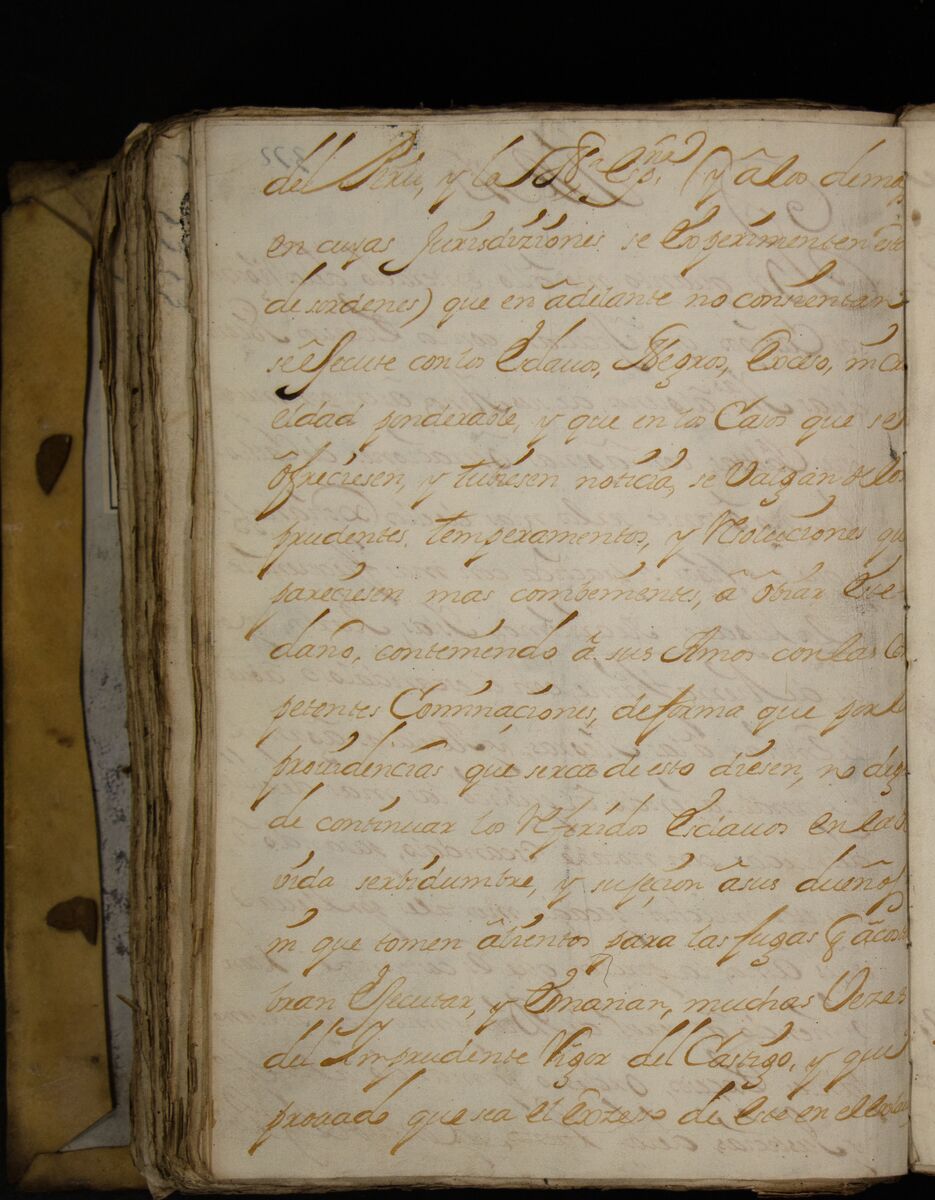 del Perú, y la Na. Espña. (y â los demas
en cuyas Jurisdiziones se Experimenten este
desordenes) que en âdelante no consientan
se êsecute con los Esclauos, Negros, Exceso, ni cru
eldad ponderable, y que en los Casos que se
ôfreciesen, y tubiesen noticia, se Valgan de los
prudentes temperamentos, y Resoluciones que
pareciesen mas combenientes, â obiar este
daño, conteniendo â sus Amos con las Com
petentes Conminaciones, de forma que por la
prouidencias que serca de esto diesen, no dejen
de continuar los Referidos Esclauos en la
vida serbidumbre, y sujecion â sus dueños
ni que tomen âlientos para las fugas q acostu
bran Executar, y Emanan, muchas Vezes
del Imprudente Rigor del Castigo, y que
prouado que sea el Exzeso de este en el